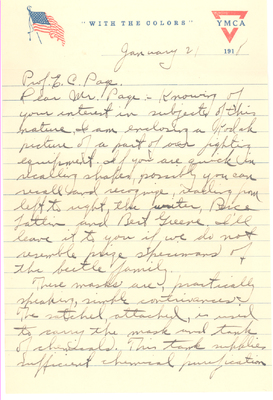 "WITH THE COLORS"
YMCA
January 21 1918
Prof. L. C. Page.
Dear Mr. Page :- Knowing of
your interest in subjects of this
nature, I am enclosing a Kodak
picture of a part of our fighting
equipment. If you are quick in
recalling shapes, possibly you can
recall and recognize, reading from
left to right, the writer,
and Bert Greene. I'll
leave it to you if we do not
resemble prize specimens of
the beetle family.
These masks are, practically
speaking, simple contrivances.
The satchel, attached, is used
to carry the mask and tank
of chemicals. This tank supplies
sufficient chemical purification